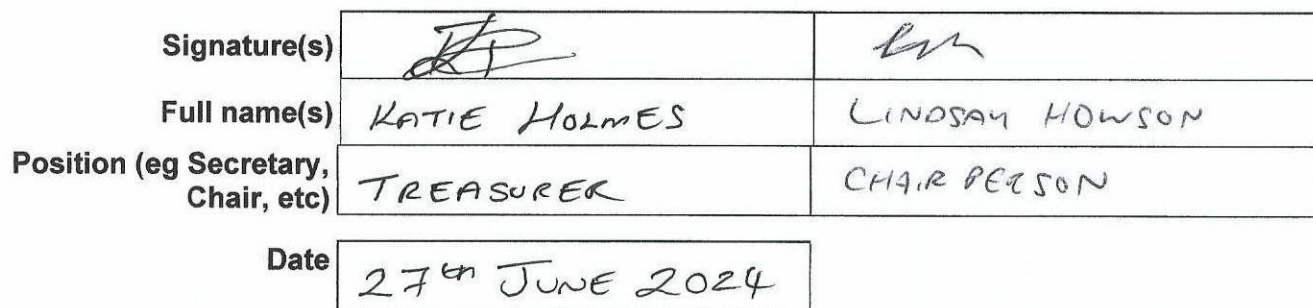 Signature(s)
Full name(s) KATIE HOLMES LINDSAY HOWSON
Position (eg Secretary,
Chair, etc) TREASURER CHAIR PERSON
Date 27th JUNE 2024